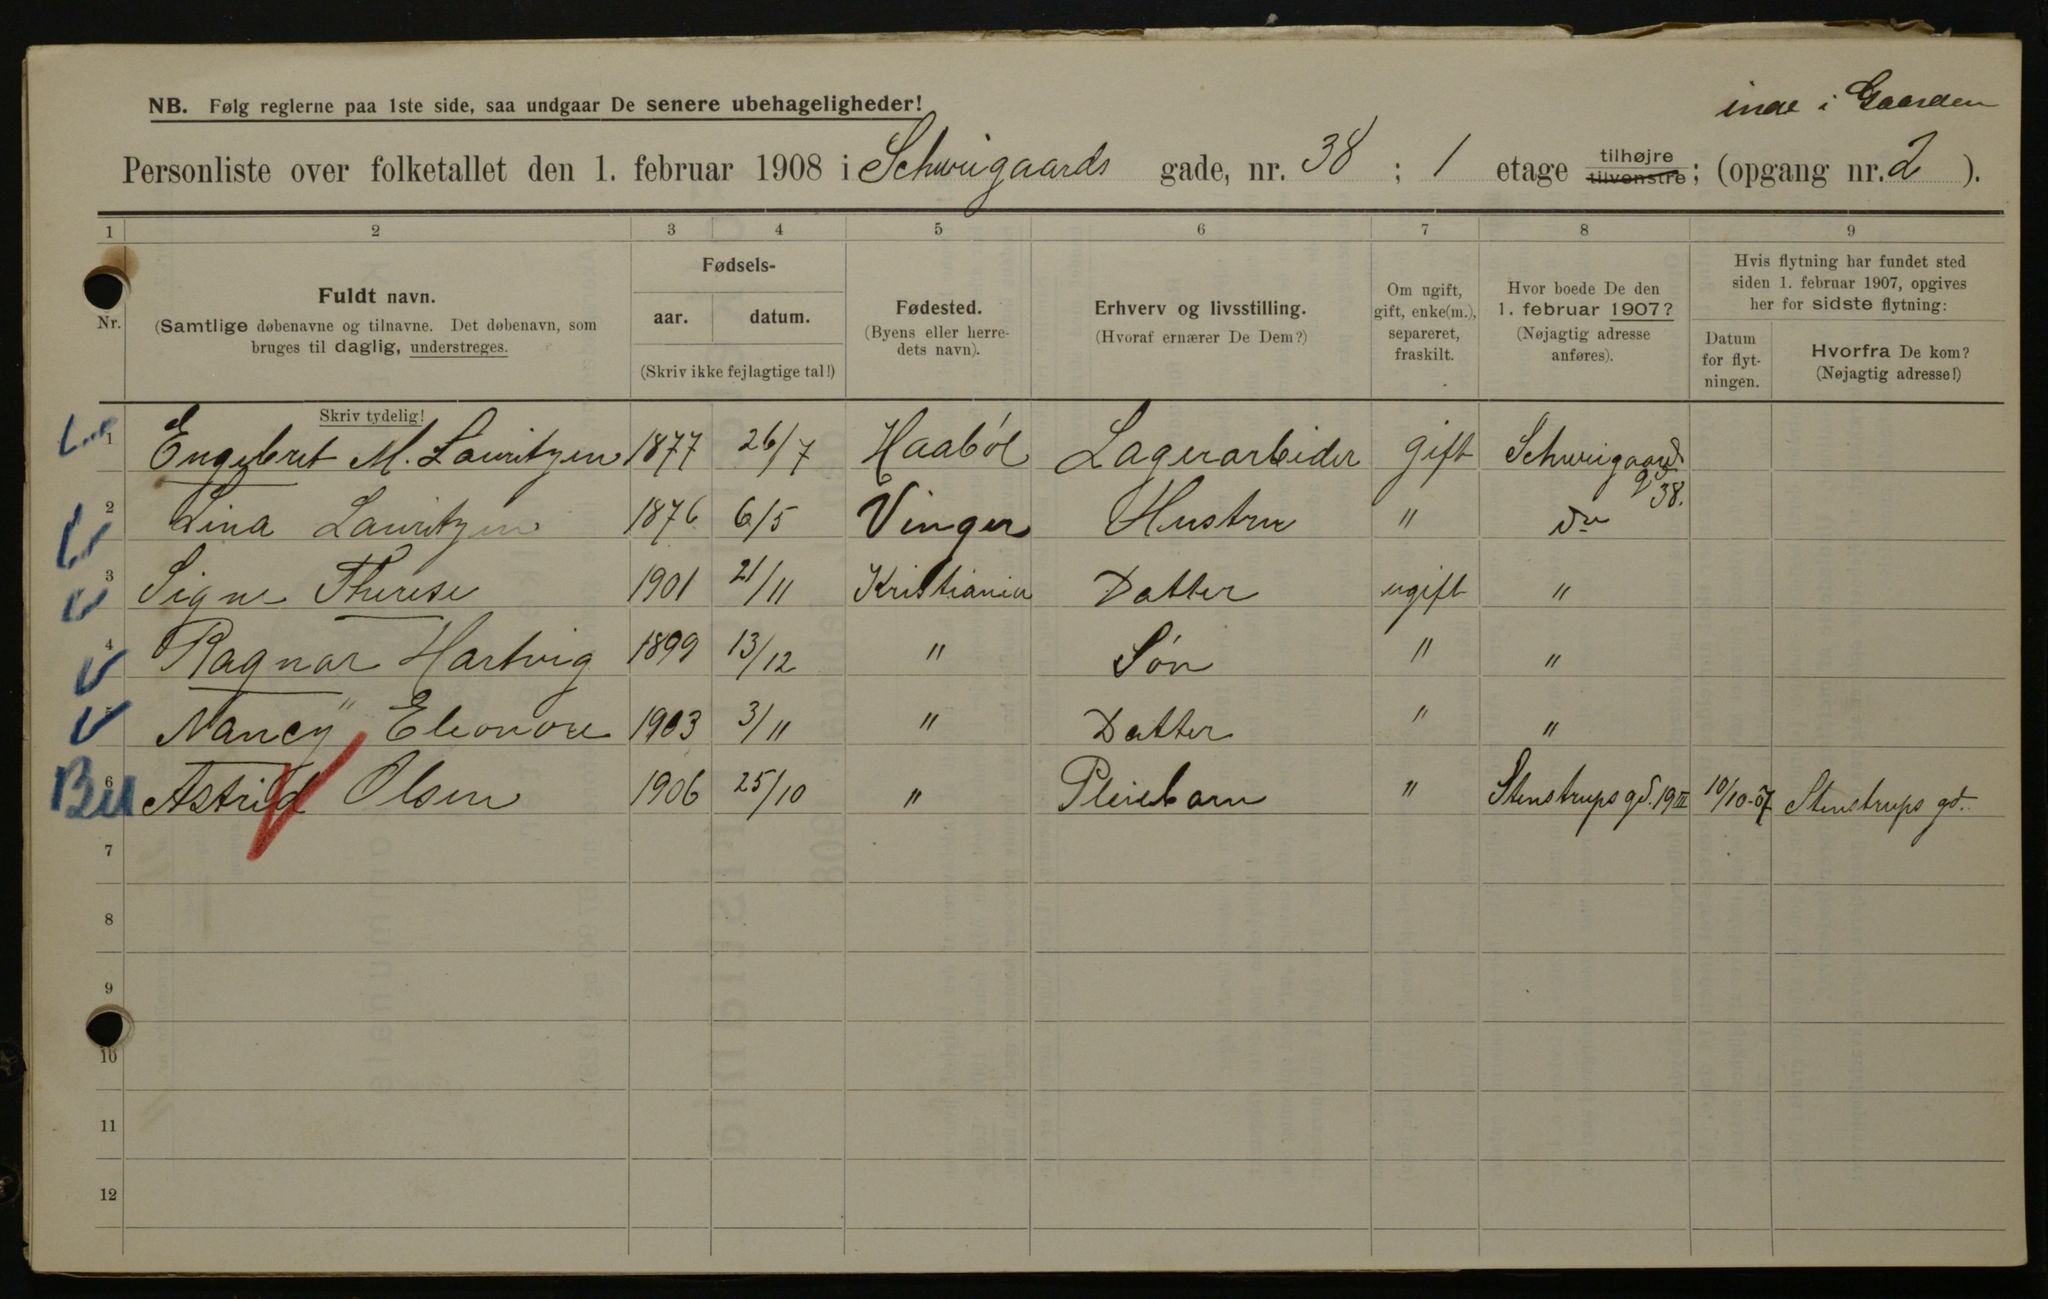 inde i Gaarden
NB. Følg reglerne paa 1ste side, saa undgaar De senere ubehageligheder!
Personliste over folketallet den 1. februar 1908 i Schweigaards gade, nr. 38 ; 1 etage tilhøjre tilvenstre; (opgang nr. 2 ).
1 2 3 4 5 6 7 8 9
Nr.
Fuldt navn.
(Samtlige døbenavne og tilnavne. Det døbenavn, som
bruges til daglig, understreges.
Skriv tydelig!
Fødsels-
aar. datum.
(Skriv ikke fejlagtige tal!)
Fødested.
(Byens eller herre-
dets navn).
Erhverv og livsstilling.
(Hvoraf ernærer De Dem?)
Om ugift,
gift, enke(m.),
separeret,
fraskilt.
Hvor boede De den
1. februar 1907?
(Nøjagtig adresse
anføres).
Hvis flytning har fundet sted
siden 1. februar 1907, opgives
her for sidste flytning:
Datum
for flyt-
ningen.
Hvorfra De kom?
(Nøjagtig adresse!)
1 Engebret M. Lauritzen 1877 26/7 Haabøl Lagerarbeider gift Schweigaards gd 38.
2 Lina Lauritzen 1876 6/5 Vinger Hustru " do
3 Signe Therese 1901 21/11 Kristiania Datter ugift "
4 Ragnar Hartvig 1899 13/12 " Søn " "
5 Nancy Eleonore 1903 3/11 " Datter " "
6 Astrid Olsen 1906 25/10 " Pleiebarn " Stenstrups gd. 19 III 10/10-07 Stenstrups gd.
7
8
9
10
11
12